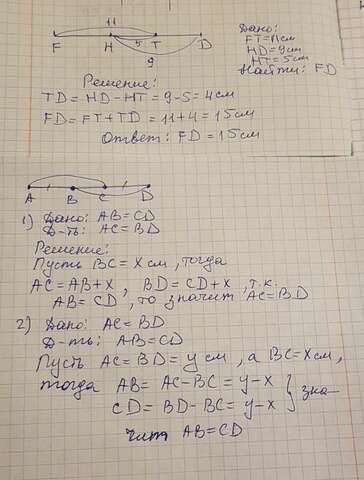 11
F H 5 T D
9
Дано:
FT=11см
HD=9см
HT=5см
Найти: FD
Решение:
TD = HD - HT = 9-5=4см
FD=FT+TD = 11+4=15см
Ответ: FD=15см
A B C D
1) Дано: AB=CD
Д-ть: AC=BD
Решение:
Пусть BC=X см, тогда
AC=AB+X, BD=CD+X, т.к.
AB=CD, то значит AC=BD
2) Дано: AC=BD
Д-ть: AB=CD
Пусть AC=BD=y см, а BC=Xсм,
тогда AB= AC-BC= y-X } зна-
CD= BD-BC= y-X
чит AB=CD